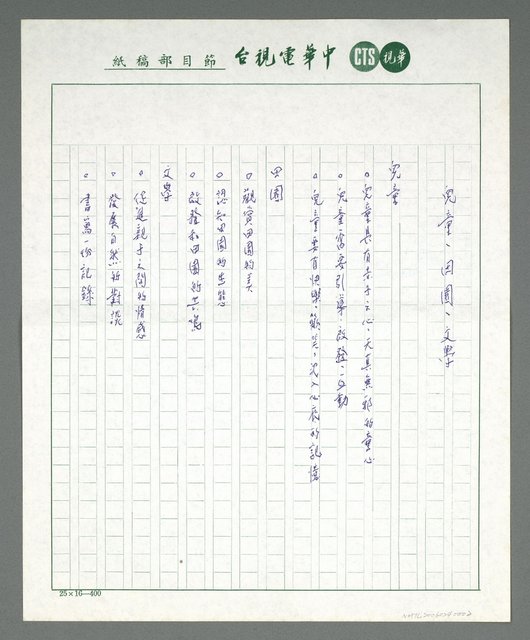 中華電視台節目部稿紙
CTS
華視
兒童、田園、文學
兒童
。兒童具有赤子之心、天真無邪的童心
。兒童需要引導、啟發、互動
。兒童要有快樂、歡笑、沈入心底的記憶
田園
。觀賞田園的美
。認知田園的生態
。啟發和田園的共鳴
文學
。促進親子之間的情感
。發展自然的對談
。書寫一份記錄
25×16—400